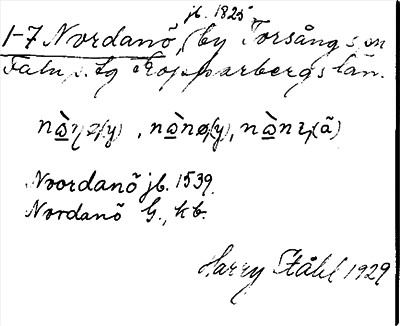 jb. 1825
1-7 Nordanö, by Torsångs sn
Falu s. tg Kopparbergs län.
nò̱ŋø(y), nò̱nø(y), nò̱nɩ(ã)
Noordanö jb. 1539
Nordanö G., kb.
Harry Ståhl 1929